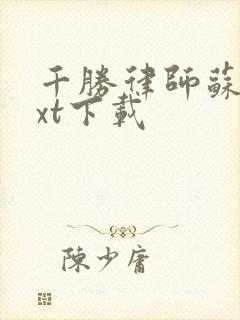 千勝律師蘇
xt下載
陳少庸